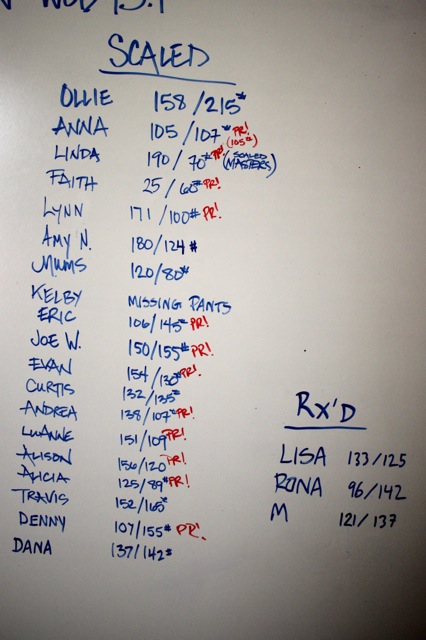 WOD 15.1
SCALED
OLLIE 158/215#
ANNA 105/107# PR! (105#)
LINDA 190/70# PR! (SCALED MASTERS)
FAITH 25/60# PR!
LYNN 171/100# PR!
AMY N. 180/124#
MUMS 120/80#
KELBY MISSING PANTS
ERIC 106/145# PR!
JOE W. 150/155# PR!
EVAN 154/130# PR!
CURTIS 132/135#
ANDREA 138/107# PR!
LUANNE 151/109 PR!
ALISON 156/120 PR!
ALICIA 125/89# PR!
TRAVIS 152/165#
DENNY 107/155# PR!
DANA 137/142#
RX'D
LISA 133/125
RONA 96/142
M 121/137